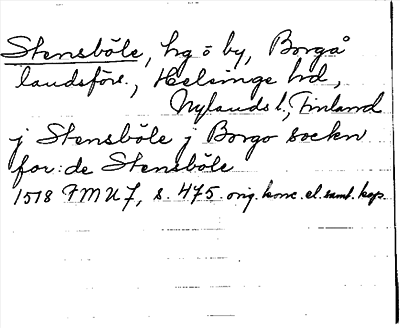 Stensböle, hg o by, Borgå
landsförs., Helsinge hd,
Nylands l., Finland
j Stensböle j Borgo sockn
for: de Stensböle
1518 FMU 7, s. 475 orig. konc. el. samt. kop.